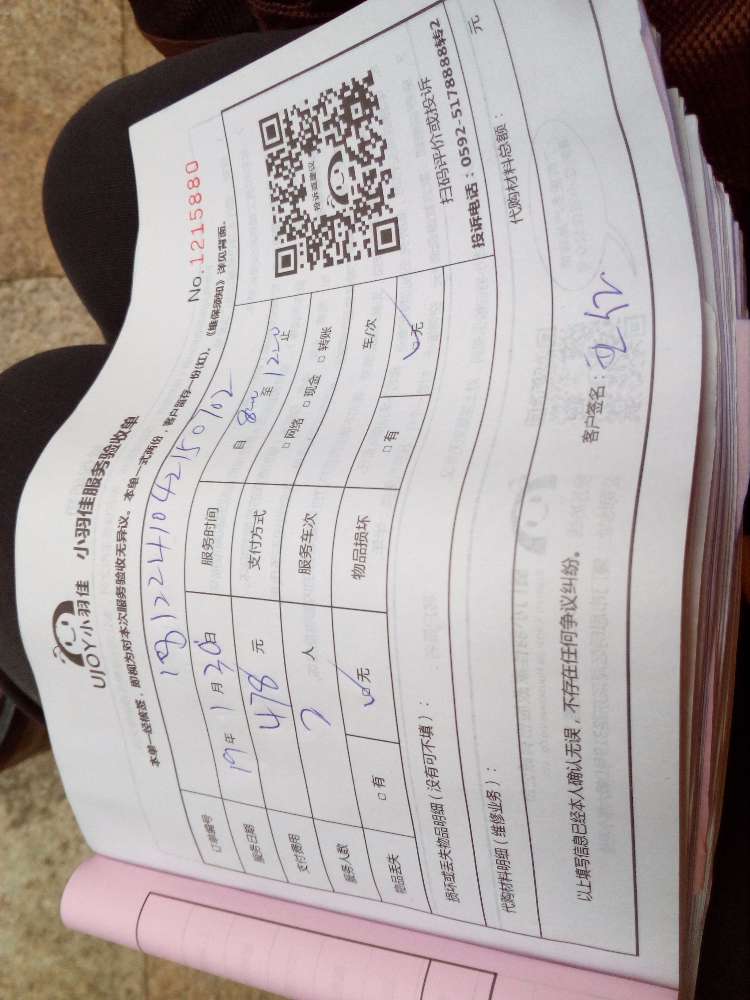 UJOY小羽佳 小羽佳服务验收单
No.1215880
本单一经核签，即视为对本次服务验收无异议。本单一式两份，客户留存一份(红)，《维保须知》详见背面。
订单编号 1812241042150702
服务日期 19年1月30日 服务时间 自 800 至 1200 止
支付费用 478 元 支付方式 □网络 □现金 □转账
服务人数 2 人 服务车次 车/次
物品丢失 □有 ☑无 物品损坏 □有 ☑无
投诉或建议
扫码评价或投诉
投诉电话：0592-5178888转2
损坏或丢失物品明细（没有可不填）：
代购材料明细（维修业务）： 代购材料总额： 元
以上填写信息已经本人确认无误，不存在任何争议纠纷。 客户签名：